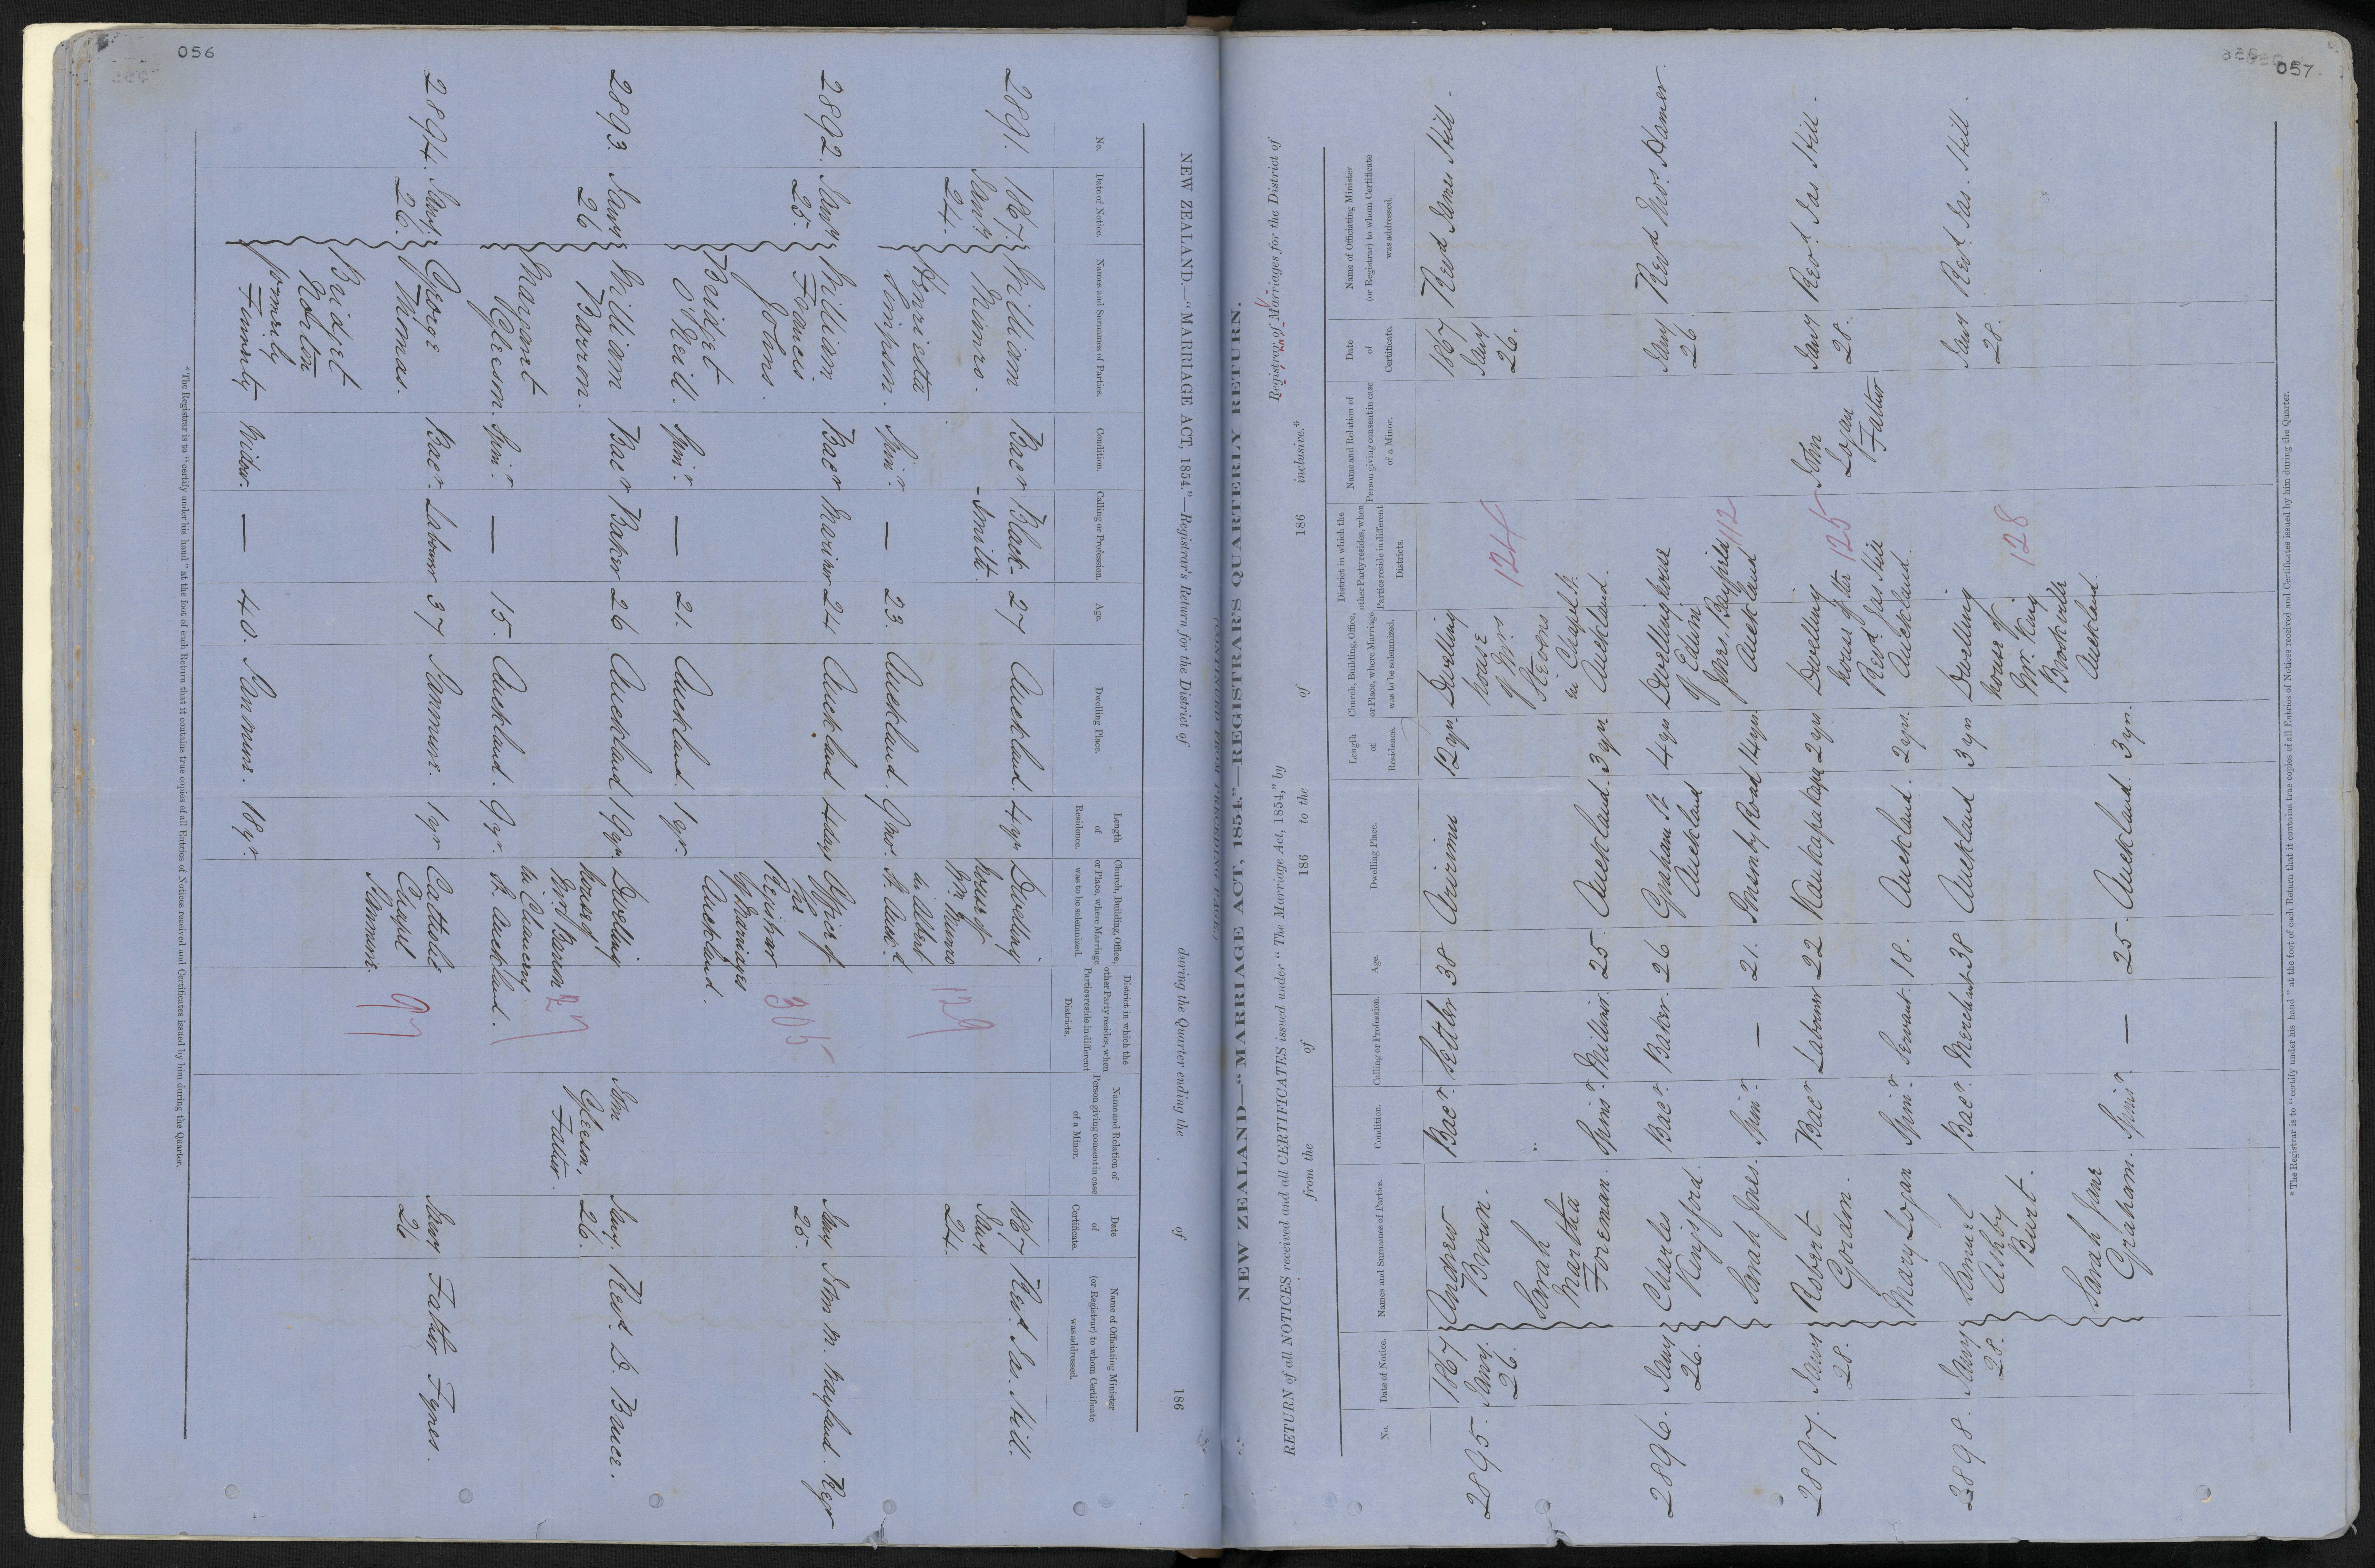 056
NEW ZEALAND.—"MARRIAGE ACT, 1854."—Registrar's Return for the District of during the Quarter ending the of 186
No.
Date of Notice.
Names and Surnames of Parties.
Condition.
Calling or Profession.
Age.
Dwelling Place.
Length of Residence.
Church, Building, Office, or Place, where Marriage was to be solemnized.
District in which the other Party resides, when Parties reside in different Districts.
Name and Relation of Person giving consent in case of a Minor.
Date of Certificate.
Name of Officiating Minister (or Registrar) to whom Certificate was addressed.
2891. 1867 Jany 24.
William Munro. Bacr Black-smith. 27 Auckland. 4 yr
Henrietta Simpson. Spinr. — 23. Auckland. 9 mo.
Dwelling house of Wm Munro in Albert St. Auckd
129
1867 Jany 24.
Revd. Jas. Hill.
2892. Jany 25.
William Francis Johns. Bacr Mariner 24 Auckland 4 days
Bridget O'Neill. Spinr. — 21. Auckland. 1 yr.
Office of the Registrar of Marriages Auckland.
305
Jany 25.
John N. Wayland. Regr
2893. Jany 26
William Barron. Bacr Baker 26 Auckland 19 yr.
Margaret Gleeson. Spinr. — 15. Auckland. 9 yr.
Dwelling house of Wm Barron in Chancery St. Auckland.
27
John Gleeson, Father.
Jany. 26.
Revd. D. Bruce.
2894. Jany. 26.
George Thomas. Bacr. Labourer 37 1 yr
Bridget Norton formerly Finnerty Widow. — 40. 18 yr.
Catholic Chapel
97
Jany 26
Father Fynes.
* The Registrar is to "certify under his hand" at the foot of each Return that it contains true copies of all Entries of Notices received and Certificates issued by him during the Quarter.
057
NEW ZEALAND—"MARRIAGE ACT, 1854."—REGISTRAR'S QUARTERLY RETURN.
RETURN of all NOTICES received and all CERTIFICATES issued under "The Marriage Act, 1854," by Registrar of Marriages for the District of
from the of 186 to the of 186 inclusive.*
No.
Date of Notice.
Names and Surnames of Parties.
Condition.
Calling or Profession.
Age.
Dwelling Place.
Length of Residence.
Church, Building, Office, or Place, where Marriage was to be solemnized.
District in which the other Party resides, when Parties reside in different Districts.
Name and Relation of Person giving consent in case of a Minor.
Date of Certificate.
Name of Officiating Minister (or Registrar) to whom Certificate was addressed.
2895. 1867 Jany. 26.
Andrew Brown. Bacr. Settler 38 12 yr.
Sarah Martha Foreman. Spinr. Milliner. 25. Auckland. 3 yr.
Dwelling house of Mrs Stevens in Chapel St. Auckland.
124
1867 Jany 26.
Revd James Hill.
2896. Jany 26.
Charles Kingsford. Bacr. Baker. 26 Graham St Auckland 4 yrs
Sarah Jones. Spinr. — 21. Road 14 yr.
Dwelling house of Edwin Jones. Auckland
112
Jany 26
Revd Thos. Hamer.
2897. Jany 28.
Robert Gordon. Bacr Labourer 22 Kaukapakapa 2 yrs
Mary Logan Spinr. Servant. 18. Auckland. 2 yrs.
Dwelling house of the Revd. Jas Hill Auckland.
125
John Logan Father
Jany 28.
Revd. Jas Hill.
2898. Jany 28.
Samuel Ashby Burt. Bacr. Merchant 38 Auckland 3 yrs
Sarah Jane Graham. Spinr. — 25. Auckland. 3 yrs.
Dwelling house of Mr. King Auckland.
128
Jany 28.
Revd. Jas. Hill.
* The Registrar is to "certify under his hand" at the foot of each Return that it contains true copies of all Entries of Notices received and Certificates issued by him during the Quarter.